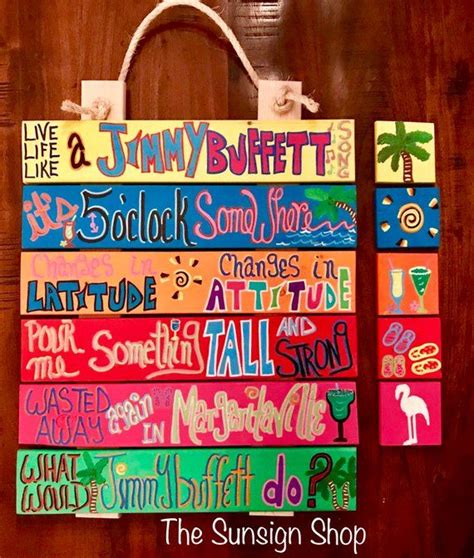 LIVE LIFE LIKE a JIMMY BUFFETT SONG
it's 5 o'clock SomeWhere
Changes in LATITUDE Changes in ATTITUDE
POUR me Something TALL AND STRONG
WASTED AWAY again IN Margaritaville
WHAT WOULD Jimmy buffett do?
The Sunsign Shop